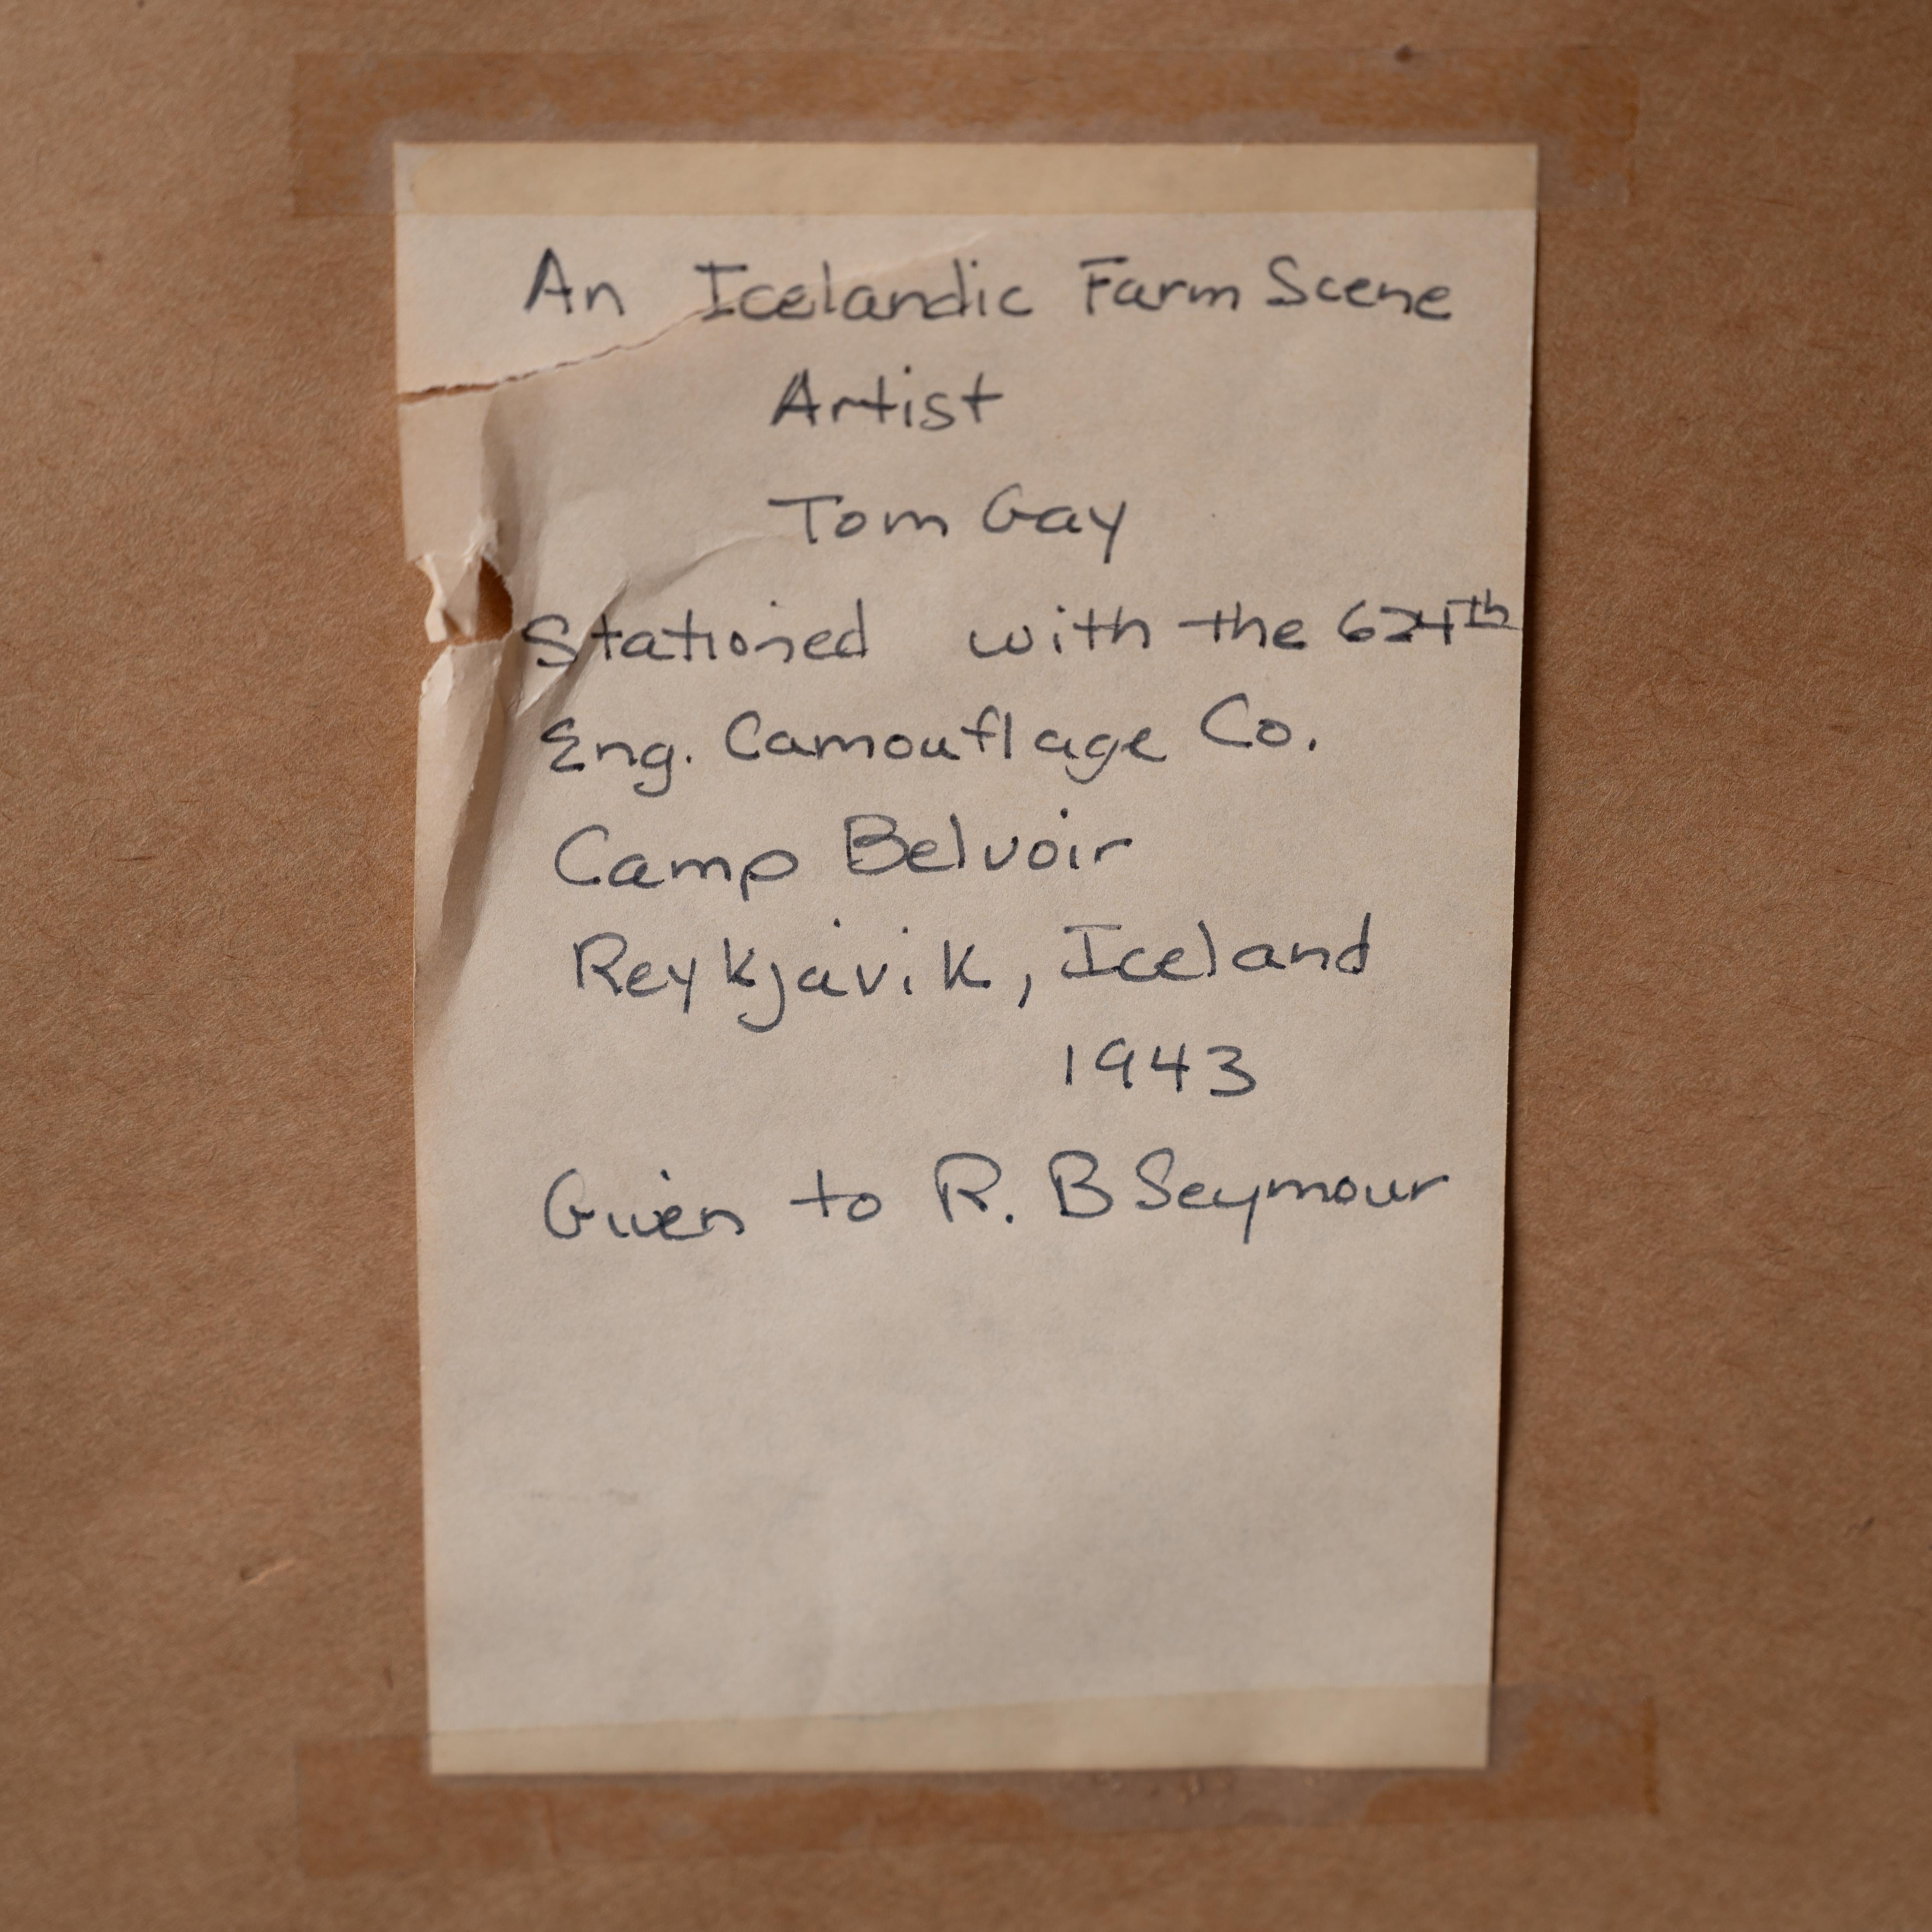 An Icelandic Farm Scene
Artist
Tom Gay
Stationed with the 624th
Eng. Camouflage Co.
Camp Belvoir
Reykjavik, Iceland
1943
Given to R. B Seymour